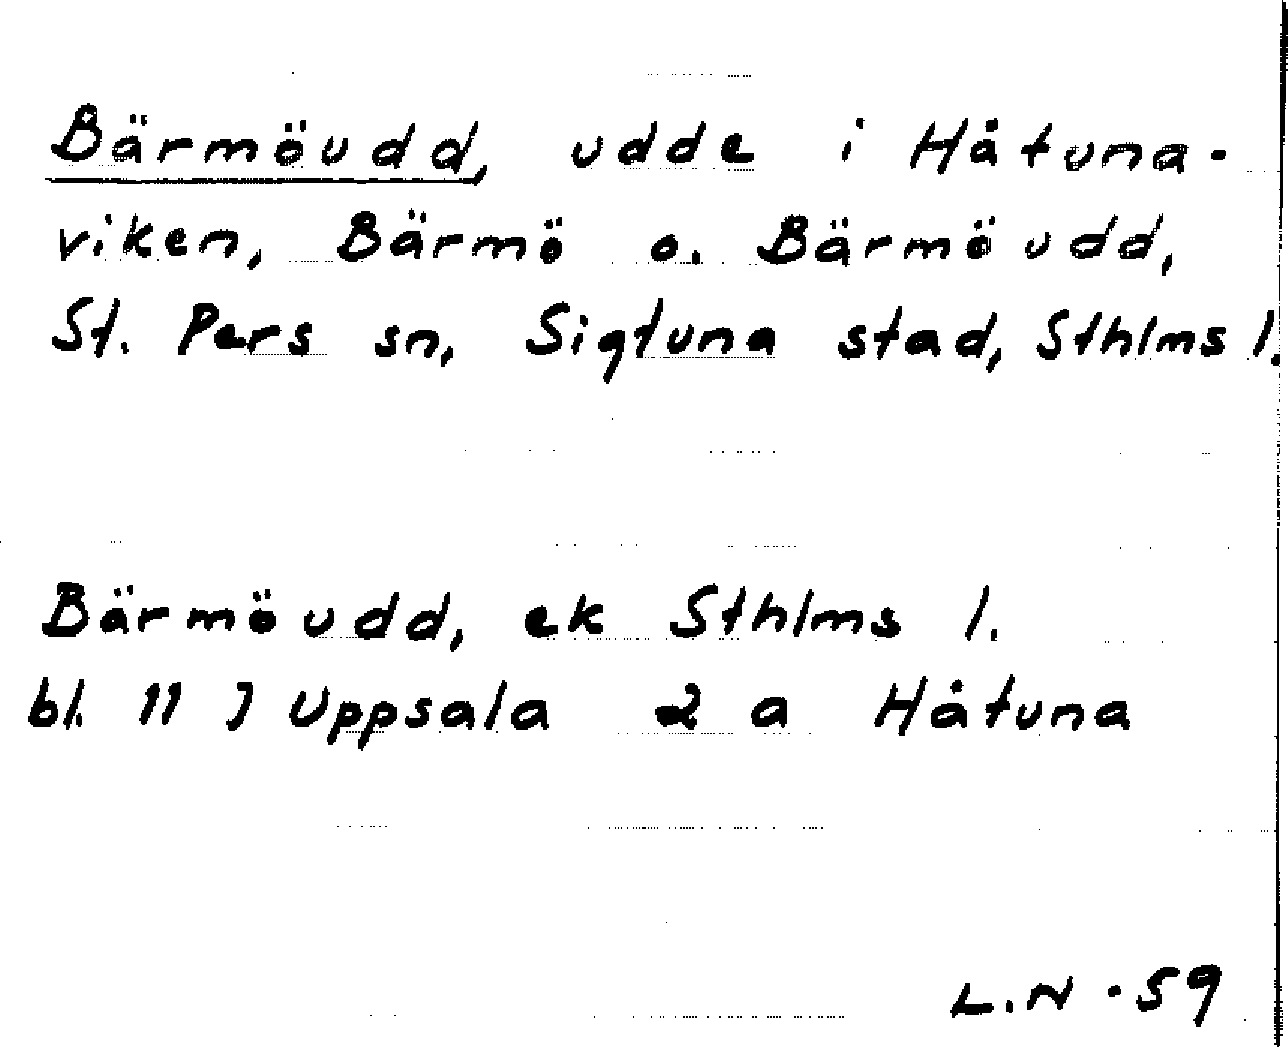 Bärmöudd, udde i Håtuna-
viken, Bärmö o. Bärmöudd,
St. Pers sn, Sigtuna stad, Sthlms l.
Bärmöudd, ek Sthlms l.
bl. 11 J Uppsala 2 a Håtuna
L.N -59